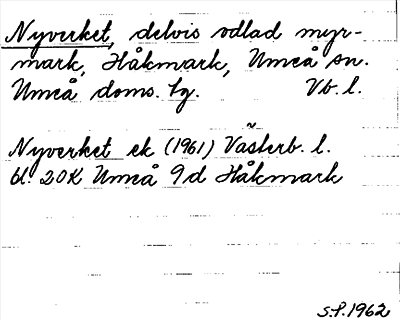 Nyverket, delvis odlad myr-
mark, Håkmark, Umeå sn.
Umeå doms. hg. Vb. l.
Nyverket ek (1961) Västerb. l.
bl. 20K Umeå 9d Håkmark
S.P. 1962